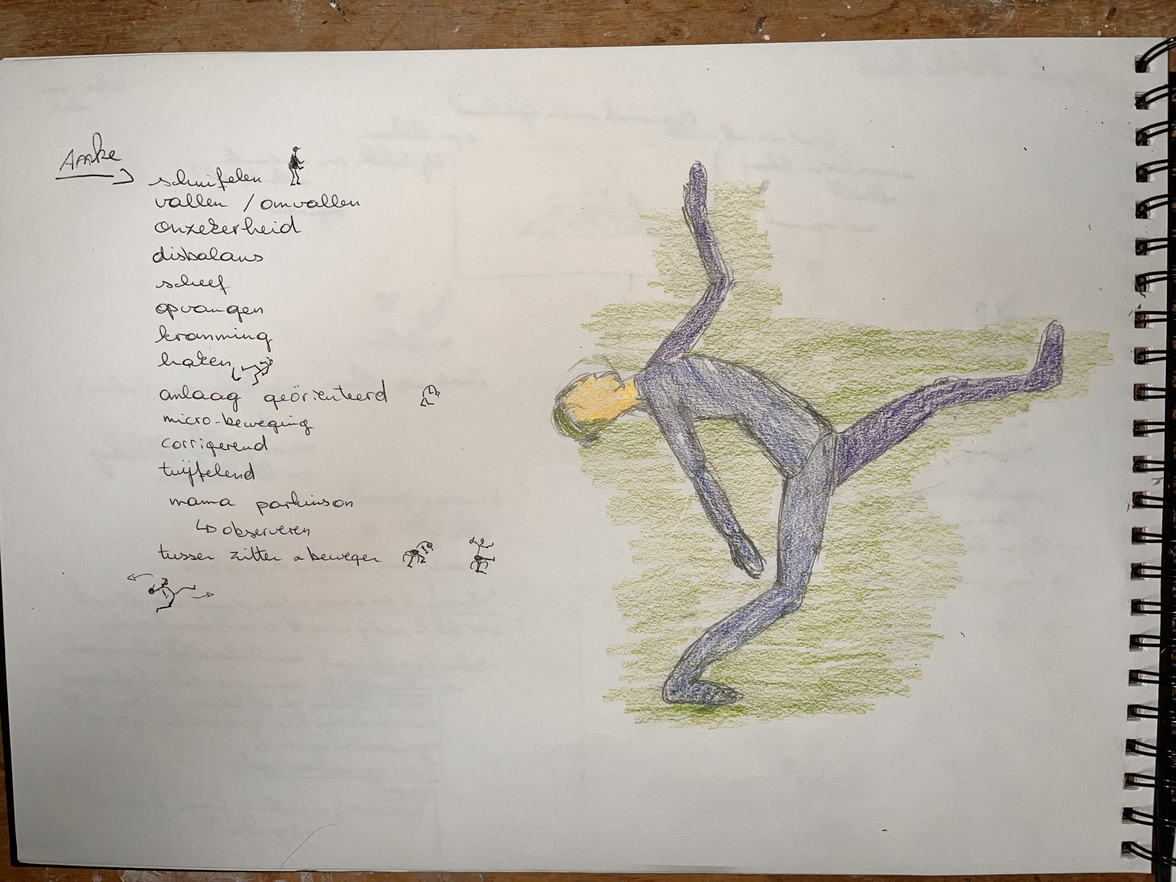 Anke
schuifelen
vallen / omvallen
onzekerheid
disbalans
scheef
opvangen
kromming
haken
omlaag geörienteerd
micro-beweging
corrigerend
twijfelend
mama parkinson
↳ observeren
tussen zitten bewegen